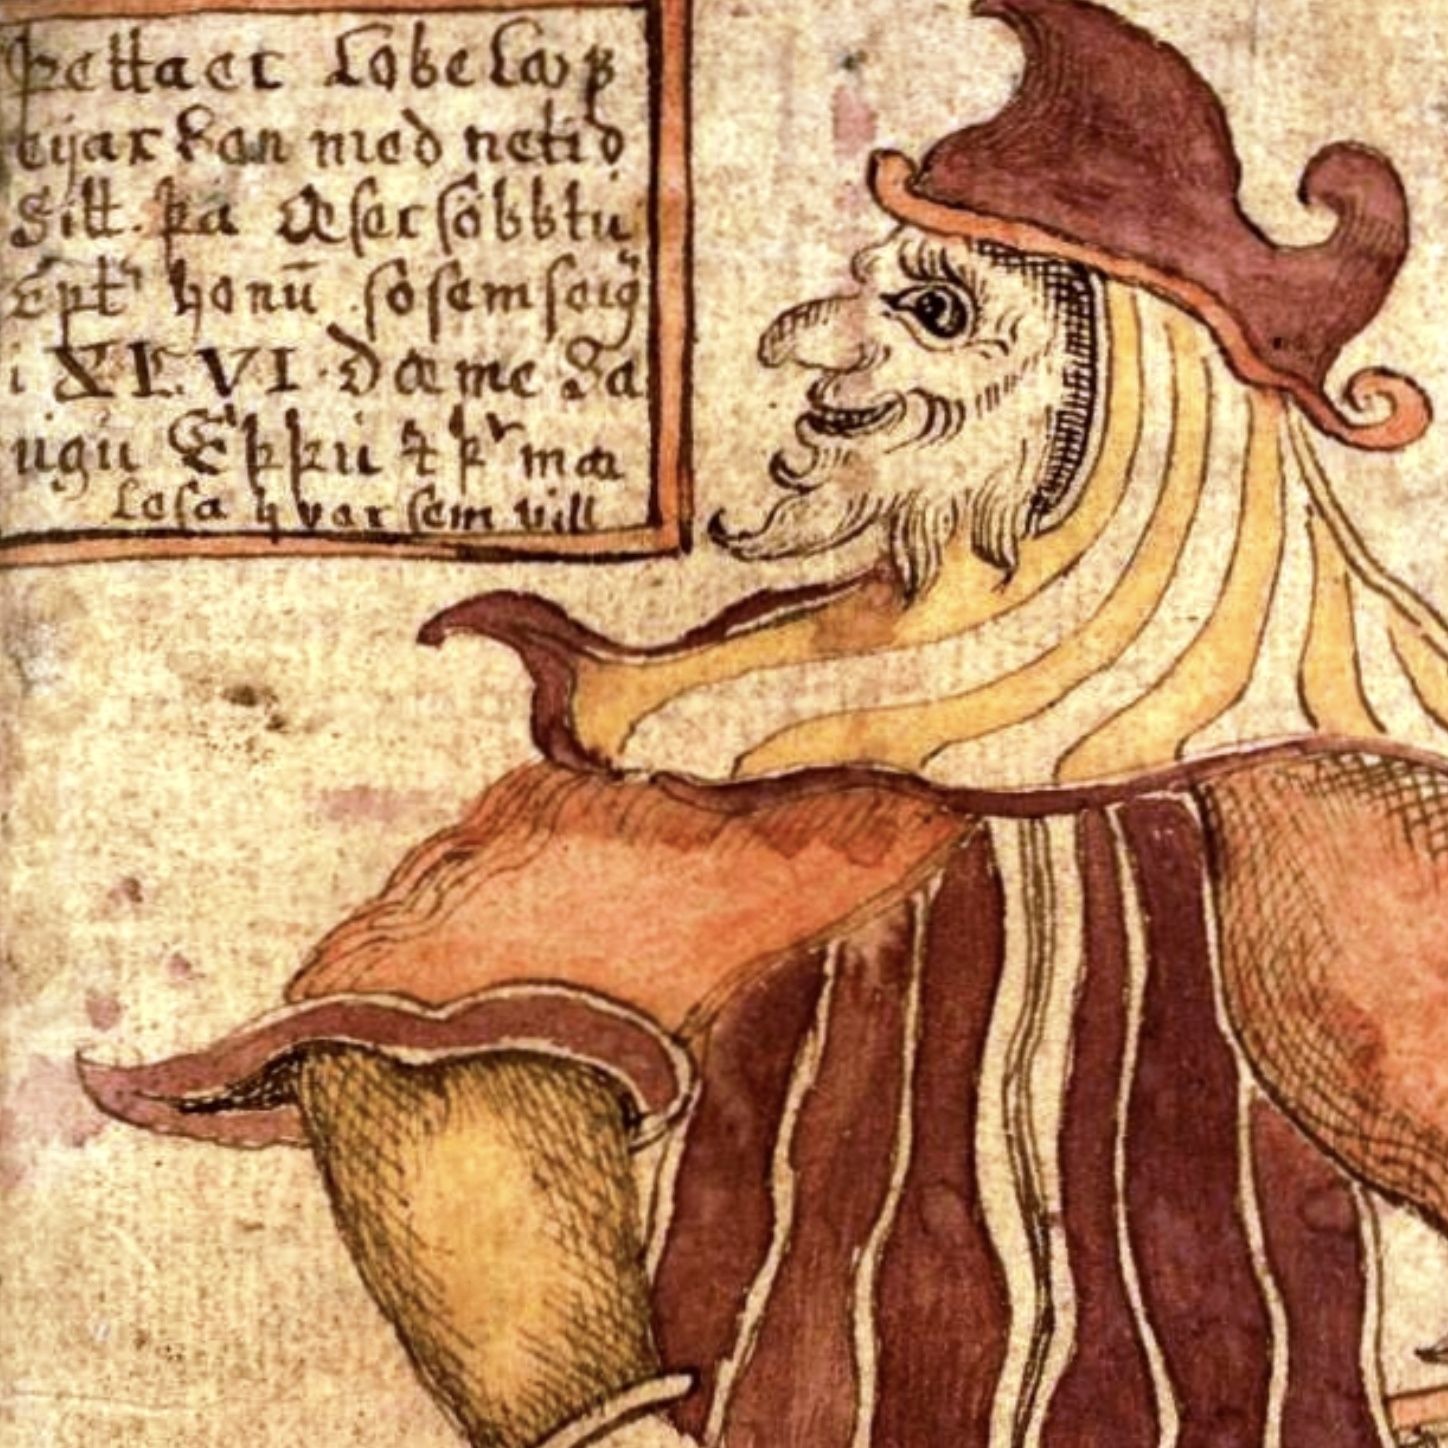 Þetta er Lobe Lauf
eyiar Son med netid
Sitt. þa Æser sobbtu
Ept' honū so sem seig
i XLVI dæme Sa
ugū Eþþū ⁊ þr ma
Lesa hvar sem vill